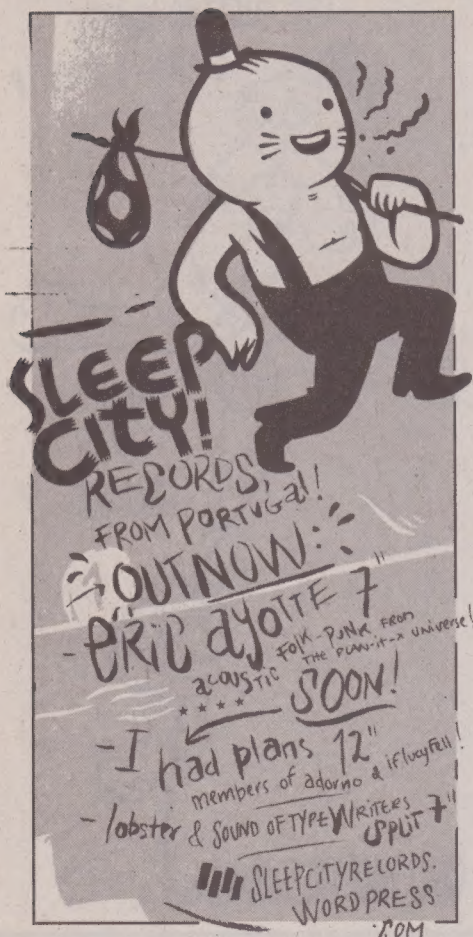 SLEEP
CITY!
RECORDS,
FROM PORTUGal!
OUT NOW:
- ERIC AYOTTE 7"
acoustic FOlK-PUNK FROM
THE PLAN-iT-X UNiverse!
SOON!
- I had plans 12"
members of adorno & iflucyfell!
- lobster & SOUND OF TYPEWRiTERS
SPLiT 7"
SLEEPCiTYRECORDS.
WORDPRESS
.COM